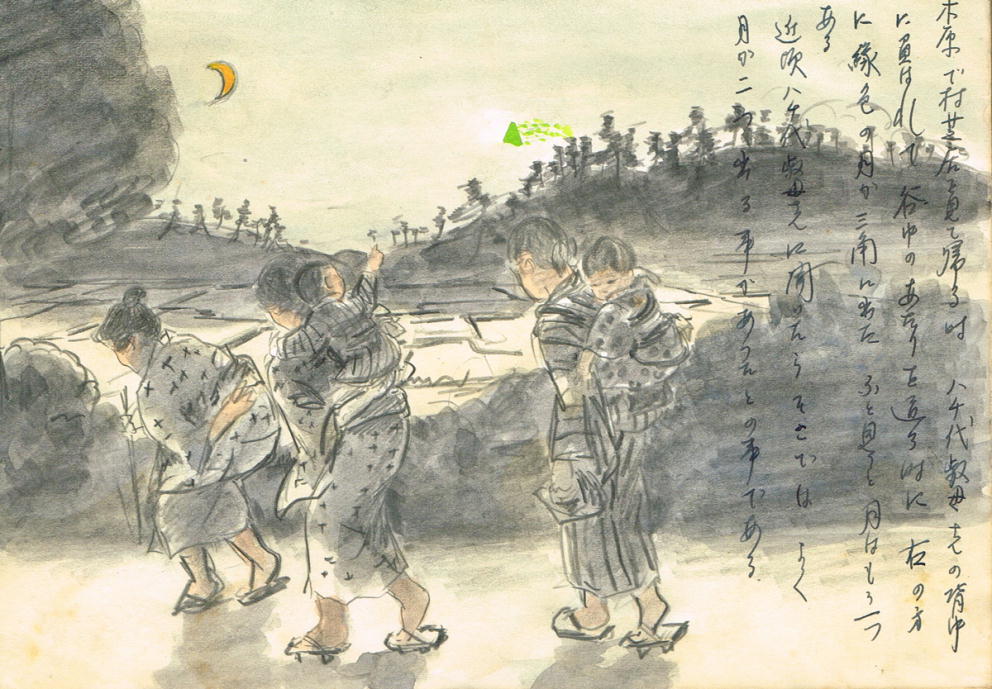 木原で村芝居を見て帰る時 八千代叔母さんの背中
に負はれて谷中のあたりを通る時に 右の方
に緑色の月が三角に出た ふと見ると月はもう一つ
ある
近頃八千代叔母さんに聞いたらそこでは よく
月が二つ出る事があつたとの事である